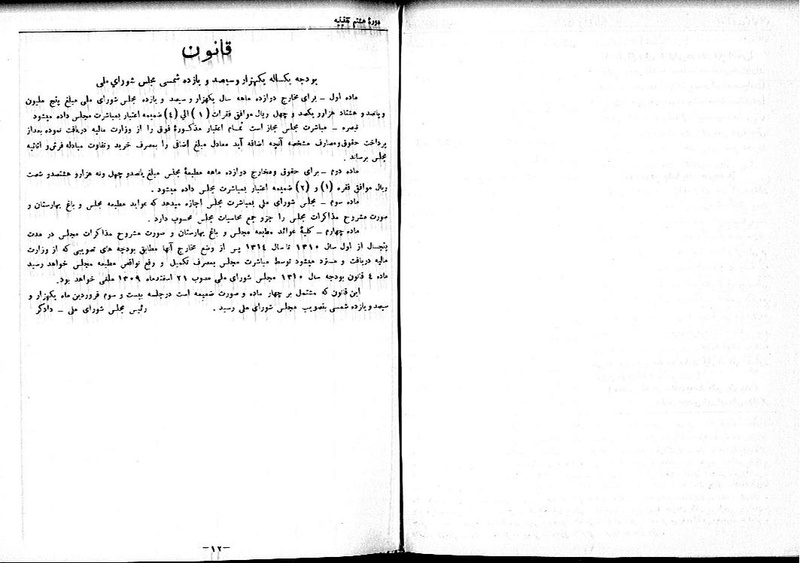 دورهٔ هشتم تقنینیه
قانون
بودجه یکساله یکهزار و سیصد و یازده شمسی مجلس شورای ملی
ماده اول – برای مخارج دوازده ماهه سال یکهزار و سیصد و یازده مجلس شورای ملی مبلغ پنج ملیون
و پانصد و هشتاد هزار و یکصد و چهل ریال موافق فقرات (۱) الی (٤) ضمیمه اعتبار بمباشرت مجلس داده میشود
تبصره – مباشرت مجلس مجاز است تمام اعتبار مذکورهٔ فوق را از وزارت مالیه دریافت نموده بعداز
پرداخت حقوق و مصارف مشخصه آنچه اضافه آید معادل مبلغ اضافی را بمصرف خرید و تفاوت مبادله فرش و اثاثیه
مجلس برساند .
ماده دوم – برای حقوق و مخارج دوازده ماهه مطبعهٔ مجلس مبلغ پانصد و چهل و نه هزار و هشتصد و شصت
ریال موافق فقره (۱) و (۲) ضمیمه اعتبار بمباشرت مجلس داده میشود .
ماده سوم – مجلس شورای ملی بمباشرت مجلس اجازه میدهد که عواید مطبعه مجلس و باغ بهارستان و
صورت مشروح مذاکرات مجلس را جزو جمع محاسبات مجلس محسوب دارد .
ماده چهارم – کلیهٔ عوائد مطبعه مجلس و باغ بهارستان و صورت مشروح مذاکرات مجلس در مدت
پنجسال از اول سال ۱۳۱۰ تا سال ۱۳۱٤ پس از وضع مخارج آنها مطابق بودجه های تصویبی که از وزارت
مالیه دریافت و مسترد میشود توسط مباشرت مجلس بمصرف تکمیل و رفع نواقص مطبعه مجلس خواهد رسید
ماده ٤ قانون بودجه سال ۱۳۱۰ مجلس شورای ملی مصوب ۲۱ اسفندماه ۱۳۰۹ ملغی خواهد بود.
این قانون که مشتمل بر چهار ماده و صورت ضمیمه است درجلسه بیست و سوم فروردین ماه یکهزار و
سیصد و یازده شمسی بتصویب مجلس شورای ملی رسید . رئیس مجلس شورای ملی – دادگر
–۱۲–